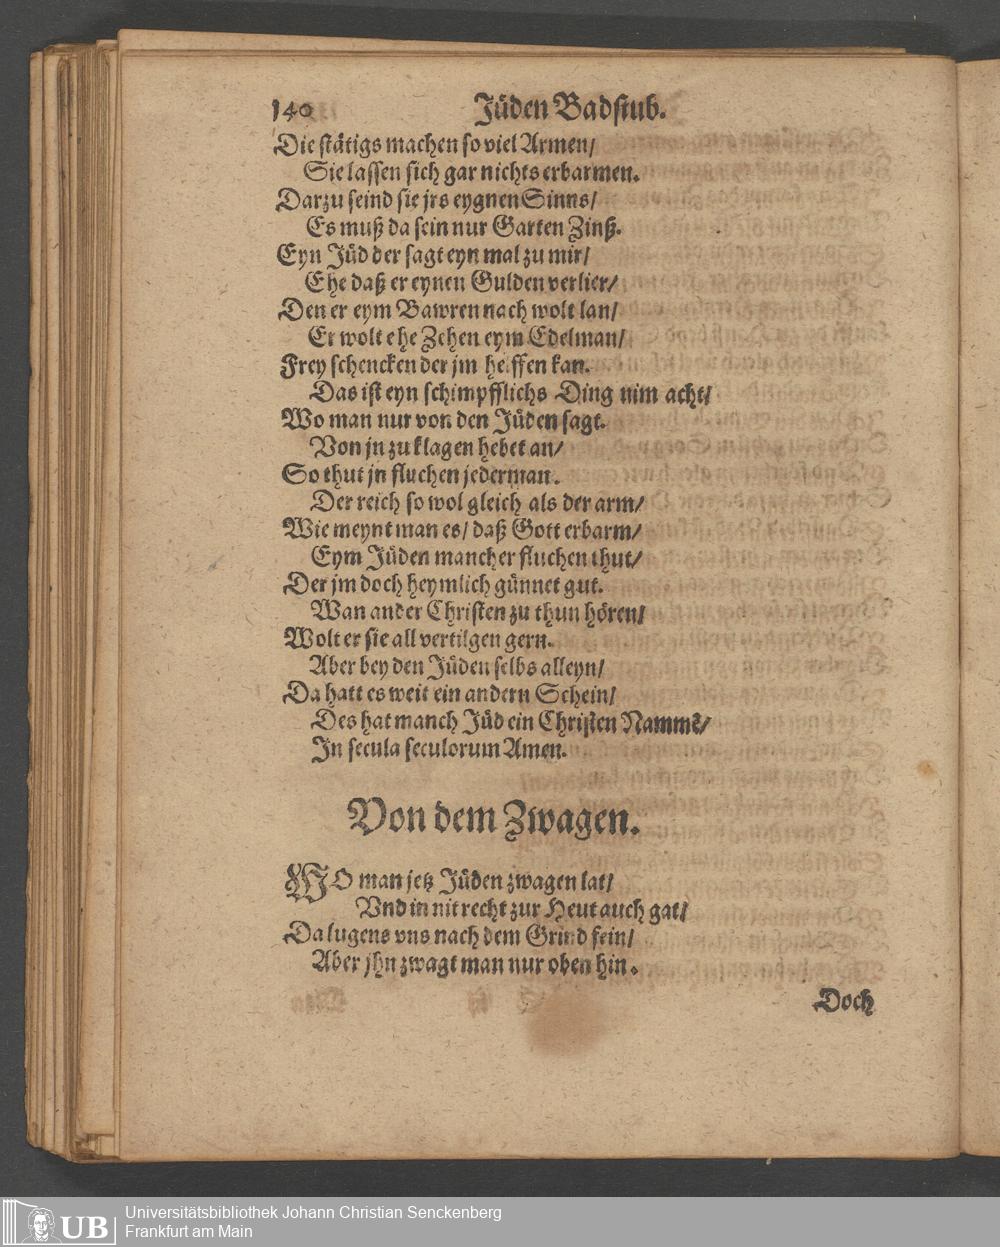 140 Jüden Badstub.
Die stätigs machen so viel Armen/
Sie lassen sich gar nichts erbarmen.
Darzu seind sie jrs eygnen Sinns/
Es muß da sein nur Garten Zinß.
Eyn Jüd der sagt eyn mal zu mir/
Ehe daß er eynen Gulden verlier/
Den er eym Bawren nach wolt lan/
Er wolt ehe Zehen eym Edelman/
Frey schencken der jm helffen kan.
Das ist eyn schimpfflichs Ding nim acht/
Wo man nur von den Jüden sagt.
Von jn zu klagen hebet an/
So thut jn fluchen jederman.
Der reich so wol gleich als der arm/
Wie meynt man es/ daß Gott erbarm/
Eym Jüden mancher fluchen thut/
Der jm doch heymlich günnet gut.
Wan ander Christen zu thun hören/
Wolt er sie all vertilgen gern.
Aber bey den Jüden selbs alleyn/
Da hatt es weit ein andern Schein/
Des hat manch Jüd ein Christen Nammē/
In secula seculorum Amen.
Von dem Zwagen.
WO man jetz Jüden zwagen lat/
Vnd in nit recht zur Heut auch gat/
Da lugens vns nach dem Grind sein/
Aber jhn zwagt man nur oben hin.
Doch
UB
Universitätsbibliothek Johann Christian Senckenberg
Frankfurt am Main